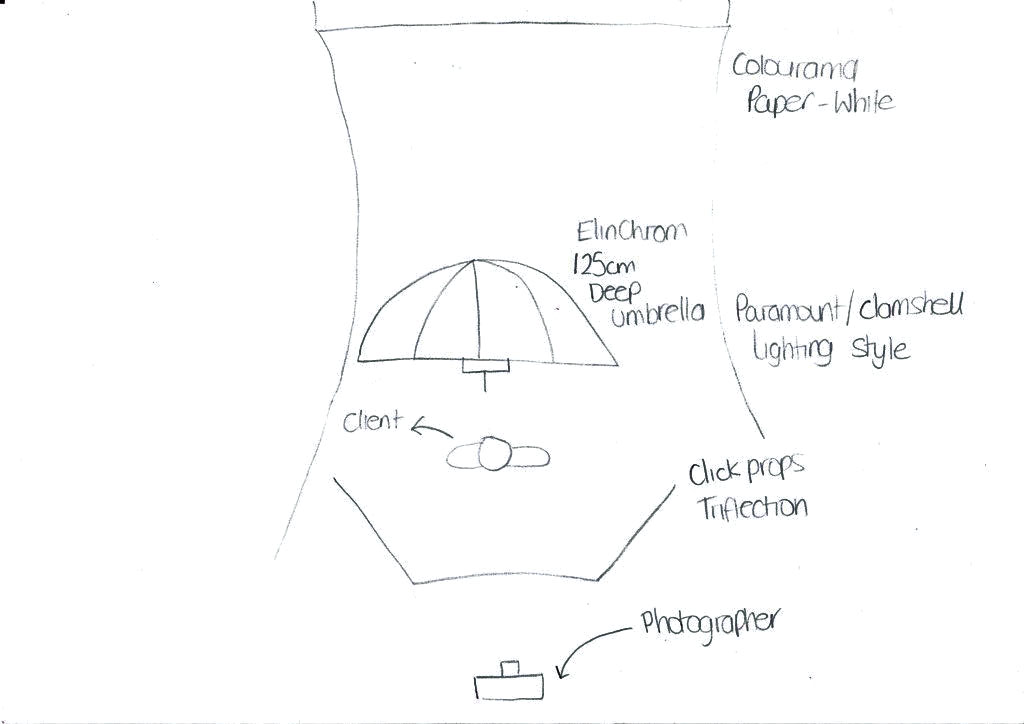 Colourama
Paper-White
ElinChrom
125cm
Deep
Umbrella
Paramount/Clamshell
lighting style
Client
Click props
Triflection
Photographer